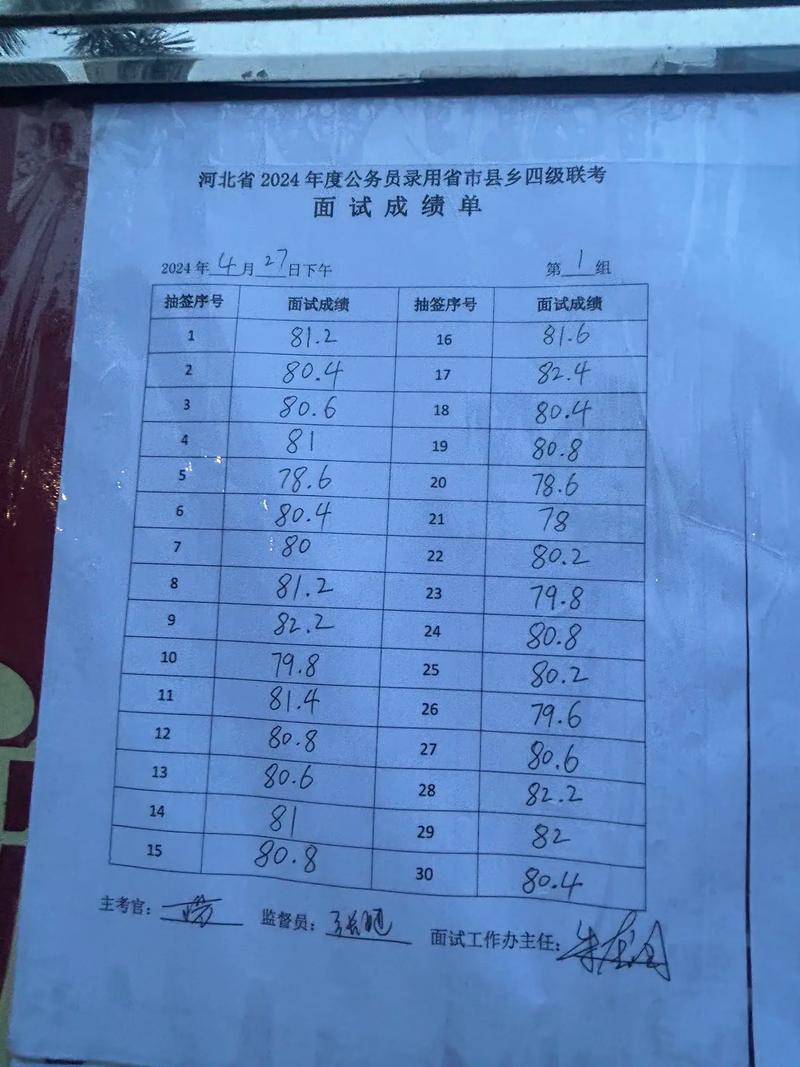 河北省2024年度公务员录用省市县乡四级联考
面试成绩单
2024年4月27日下午 第1组
抽签序号 面试成绩 抽签序号 面试成绩
1 81.2 16 81.6
2 80.4 17 82.4
3 80.6 18 80.4
4 81 19 80.8
5 78.6 20 78.6
6 80.4 21 78
7 80 22 80.2
8 81.2 23 79.8
9 82.2 24 80.8
10 79.8 25 80.2
11 81.4 26 79.6
12 80.8 27 80.6
13 80.6 28 82.2
14 81 29 82
15 80.8 30 80.4
主考官： 监督员： 面试工作办主任：